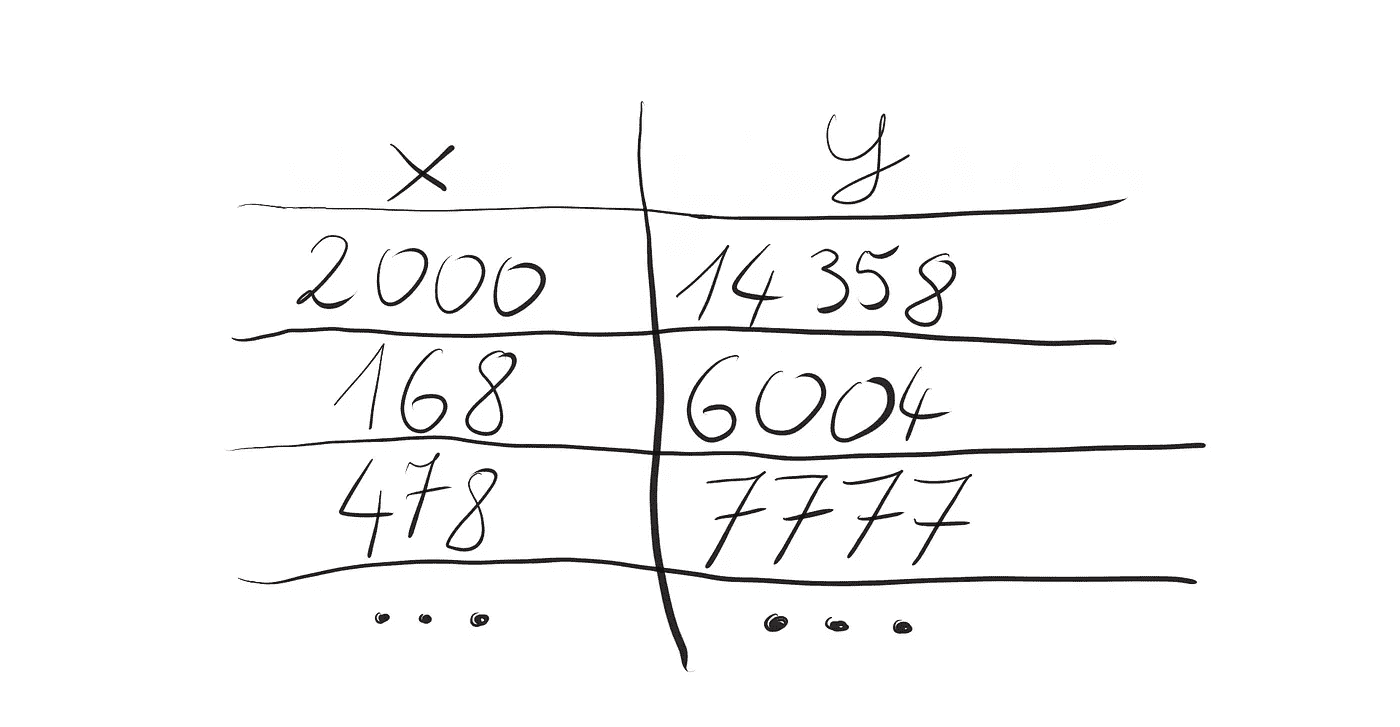 x y
2000 14358
168 6004
478 7777
... ...